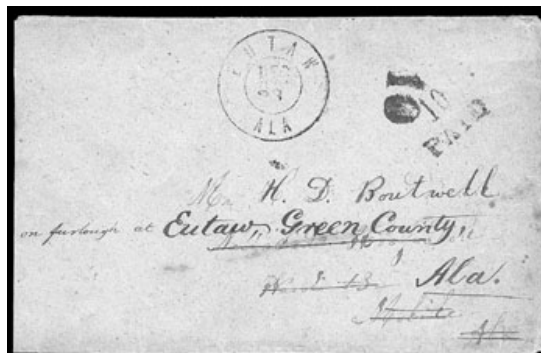 EUTAW
DEC
ALA
10
10
PAID
Mr. H. D. Boutwell
on furlough at Eutaw, Green County,
Ala.
Mobile
Ala